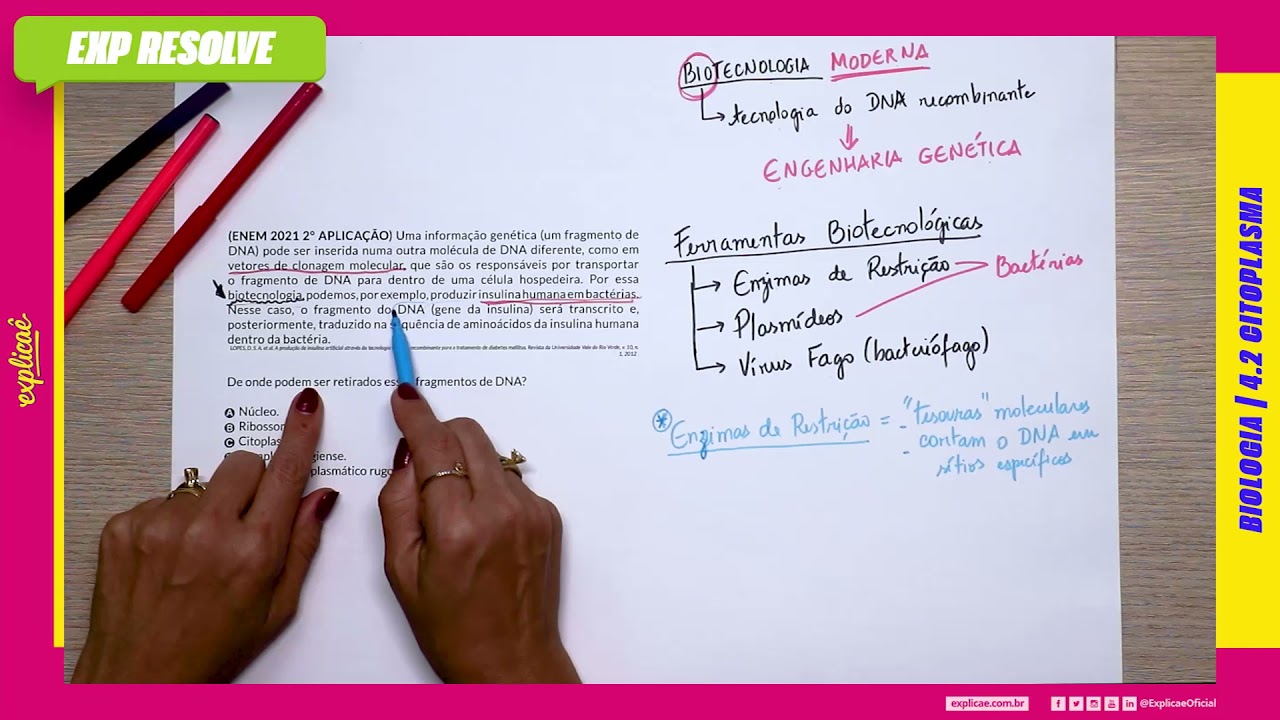 EXP RESOLVE
BIOTECNOLOGIA MODERNA
tecnologia do DNA recombinante
ENGENHARIA GENÉTICA
(ENEM 2021 2° APLICAÇÃO) Uma informação genética (um fragmento de
DNA) pode ser inserida numa outra molécula de DNA diferente, como em
vetores de clonagem molecular, que são os responsáveis por transportar
o fragmento de DNA para dentro de uma célula hospedeira. Por essa
biotecnologia, podemos, por exemplo, produzir insulina humana em bactérias.
Nesse caso, o fragmento do DNA (gene da insulina) será transcrito e,
posteriormente, traduzido na quência de aminoácidos da insulina humana
dentro da bactéria.
LOPES, D. S. A. et al. A produção de insulina artificial através da tecnologia recombinante para o tratamento de diabetes mellitus. Revista da Universidade Vale do Rio Verde, v. 10, n.
1, 2012
De onde podem ser retirados fragmentos de DNA?
A Núcleo.
B Ribossor
C Citoplas
giense.
plasmático rugo
Ferramentas Biotecnológicas
Enzimas de Restrição
Bactérias
Plasmídeos
Vírus Fago (bacteriófago)
* Enzimas de Restrição = - "tesouras" moleculares
- cortam o DNA em
sítios específicos
explicaê
BIOLOGIA | 4.2 CITOPLASMA
explicae.com.br
@ExplicaeOficial